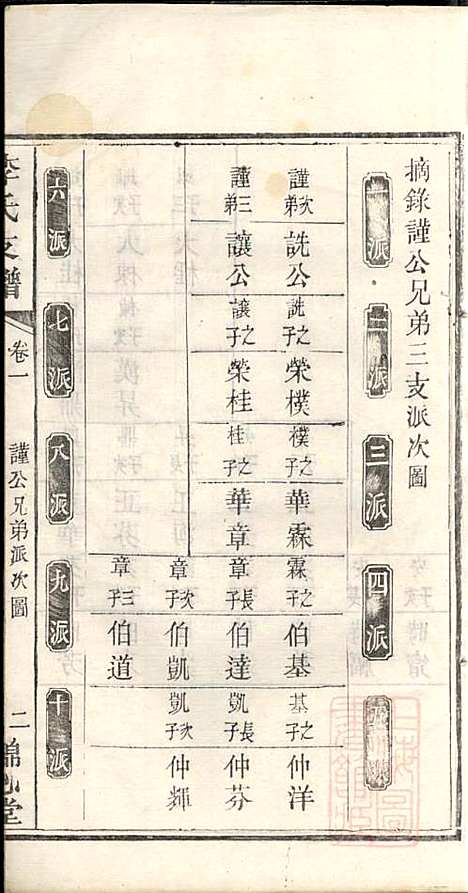 摘錄謹公兄弟三支派次圖
一派
二派
三派
四派
五派
謹次弟
詵公
詵之子
榮樸
樸之子
華霖
霖之子
伯基
基之子
仲洋
謹三弟
讓公
讓之子
榮桂
桂之子
華章
章長子
伯達
凱長子
仲芬
章次子
伯凱
凱次子
仲輝
章三子
伯道
六派
七派
八派
九派
十派
氏支譜
卷一
謹公兄弟派次圖
二
堂